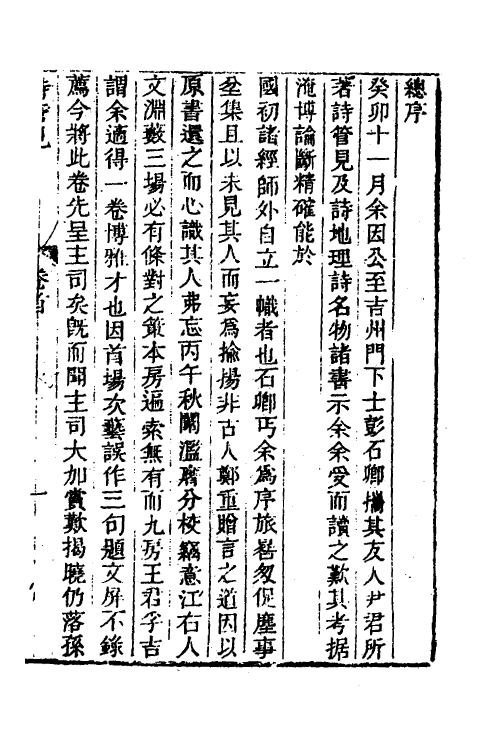 總序
癸卯十一月余因公至吉州門下士彭石卿攜其友人尹君所
著詩管見及詩地理詩名物諸書示余余受而讀之歎其考據
淹博論斷精確能於
國初諸經師外自立一幟者也石卿丐余爲序旅晷匆促塵事
坌集且以未見其人而妄爲揄揚非古人鄭重贈言之道因以
原書還之而心識其人弗忘丙午秋闈濫廁分校竊意江右人
文淵藪三場必有條對之策本房遍索無有而九房王君孚吉
謂余適得一卷博雅才也因首場次藝誤作三句題文屏不錄
薦今將此卷先呈主司矣旣而聞主司大加賞歎揭曉仍落孫
詩管見
卷首
一